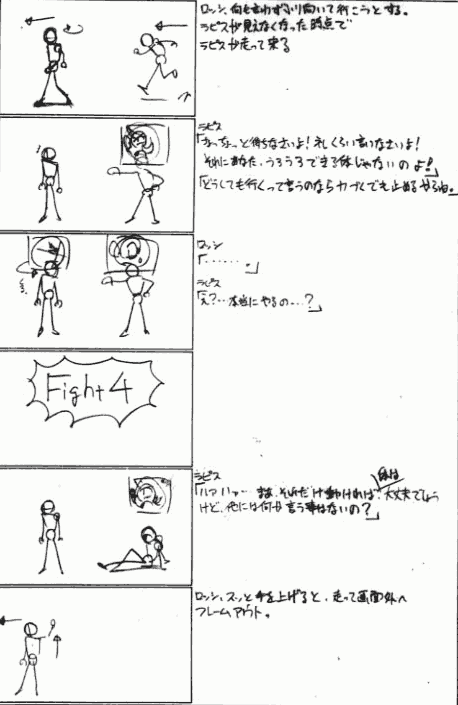 ロッシ、何も言わずふり向いて行こうとする。
ラピスが見えなくなった時点で
ラピスが走って来る
ラピス
「ちょっ、ちょっと待ちなさいよ!礼くらい言いなさいよ!
それにあなた、うろうろできる体じゃないのよ!」
「どうしても行くって言うのなら力づくでも止めるからね。」
ロッシ
「・・・・・・。」
ラピス
「え?…本当にやるの…?」
Fight 4
ラピス
「ハァハァ… まぁ、それだけ動ければ、体は大丈夫でしょう
けど、他には何か言う事はないの?」
ロッシ、スッと手を上げると、走って画面外へ
フレームアウト。